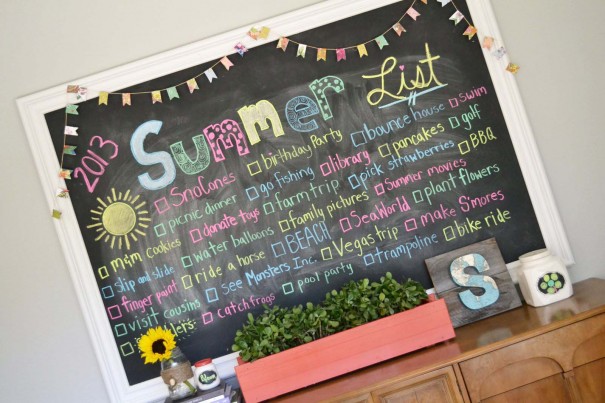 2013
Summer List
SnoCones birthday party bounce house swim
picnic dinner go fishing library pancakes golf
donate toys farm trip pick strawberries BBQ
m&m cookies water balloons family pictures Summer movies
Slip and slide ride a horse BEACH SeaWorld plant flowers
finger paint see Monsters Inc. Vegas trip make S'mores
visit cousins catch frogs pool party trampoline bike ride
S